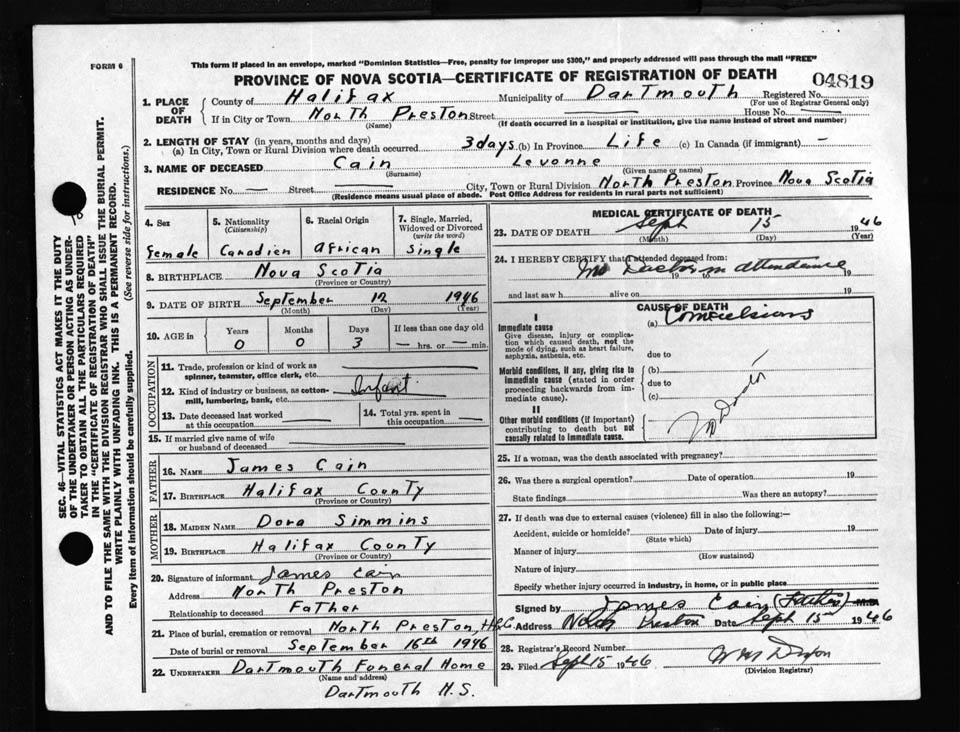 FORM 6
This form if placed in an envelope, marked "Dominion Statistics—Free, penalty for improper use $300," and properly addressed will pass through the mail "FREE"
PROVINCE OF NOVA SCOTIA—CERTIFICATE OF REGISTRATION OF DEATH
04819
1. PLACE OF DEATH
County of Halifax Municipality of Dartmouth Registered No.
(For use of Registrar General only)
If in City or Town North Preston Street House No.
(Name) (If death occurred in a hospital or institution, give the name instead of street and number)
2. LENGTH OF STAY (in years, months and days)
(a) In City, Town or Rural Division where death occurred 3 days (b) In Province Life (c) In Canada (if immigrant) —
3. NAME OF DECEASED Cain Levonne
(Surname) (Given name or names)
RESIDENCE No. — Street City, Town or Rural Division North Preston Province Nova Scotia
(Residence means usual place of abode. Post Office Address for residents in rural parts not sufficient)
4. Sex
Female
5. Nationality
(Citizenship)
Canadien
6. Racial Origin
African
7. Single, Married, Widowed or Divorced
(write the word)
Single
8. BIRTHPLACE Nova Scotia
(Province or Country)
9. DATE OF BIRTH September 12 1946
(Month) (Day) (Year)
10. AGE in Years Months Days If less than one day old
0 0 3 — hrs. or — min.
OCCUPATION
11. Trade, profession or kind of work as
spinner, teamster, office clerk, etc.
12. Kind of industry or business, as cotton-
mill, lumbering, bank, etc. Infant
13. Date deceased last worked
at this occupation
14. Total yrs. spent in
this occupation
15. If married give name of wife
or husband of deceased
FATHER
16. NAME James Cain
17. BIRTHPLACE Halifax County
(Province or Country)
MOTHER
18. MAIDEN NAME Dora Simmins
19. BIRTHPLACE Halifax County
(Province or Country)
20. Signature of informant James Cain
Address North Preston
Relationship to deceased Father
21. Place of burial, cremation or removal North Preston, Hfx Co
Date of burial or removal September 16th 1946
22. UNDERTAKER Dartmouth Funeral Home
(Name and address)
Dartmouth N.S.
MEDICAL CERTIFICATE OF DEATH
23. DATE OF DEATH Sept 15 1946
(Month) (Day) (Year)
24. I HEREBY CERTIFY that I attended deceased from:
No Doctor in attendance
19 to 19
and last saw h alive on 19
CAUSE OF DEATH
I
Immediate cause
Give disease, injury or complication which caused death, not the mode of dying, such as heart failure, asphyxia, asthenia, etc.
(a) Convulsions
due to
Morbid conditions, if any, giving rise to immediate cause (stated in order proceeding backwards from immediate cause).
(b)
due to
(c)
II
Other morbid conditions (if important) contributing to death but not causally related to immediate cause.
25. If a woman, was the death associated with pregnancy?
26. Was there a surgical operation? Date of operation 19
State findings Was there an autopsy?
27. If death was due to external causes (violence) fill in also the following:—
Accident, suicide or homicide? Date of injury 19
(State which)
Manner of injury
(How sustained)
Nature of injury
Specify whether injury occurred in industry, in home, or in public place
Signed by James Cain (Father) M.D.
Address North Preston Date Sept 15 1946
28. Registrar's Record Number
29. Filed Sept 15 1946
(Division Registrar)
SEC. 46—VITAL STATISTICS ACT MAKES IT THE DUTY
OF THE UNDERTAKER OR PERSON ACTING AS UNDER-
TAKER TO OBTAIN ALL THE PARTICULARS REQUIRED
IN THE "CERTIFICATE OF REGISTRATION OF DEATH"
AND TO FILE THE SAME WITH THE DIVISION REGISTRAR WHO SHALL ISSUE THE BURIAL PERMIT.
WRITE PLAINLY WITH UNFADING INK. THIS IS A PERMANENT RECORD.
Every item of information should be carefully supplied. (See reverse side for instructions.)